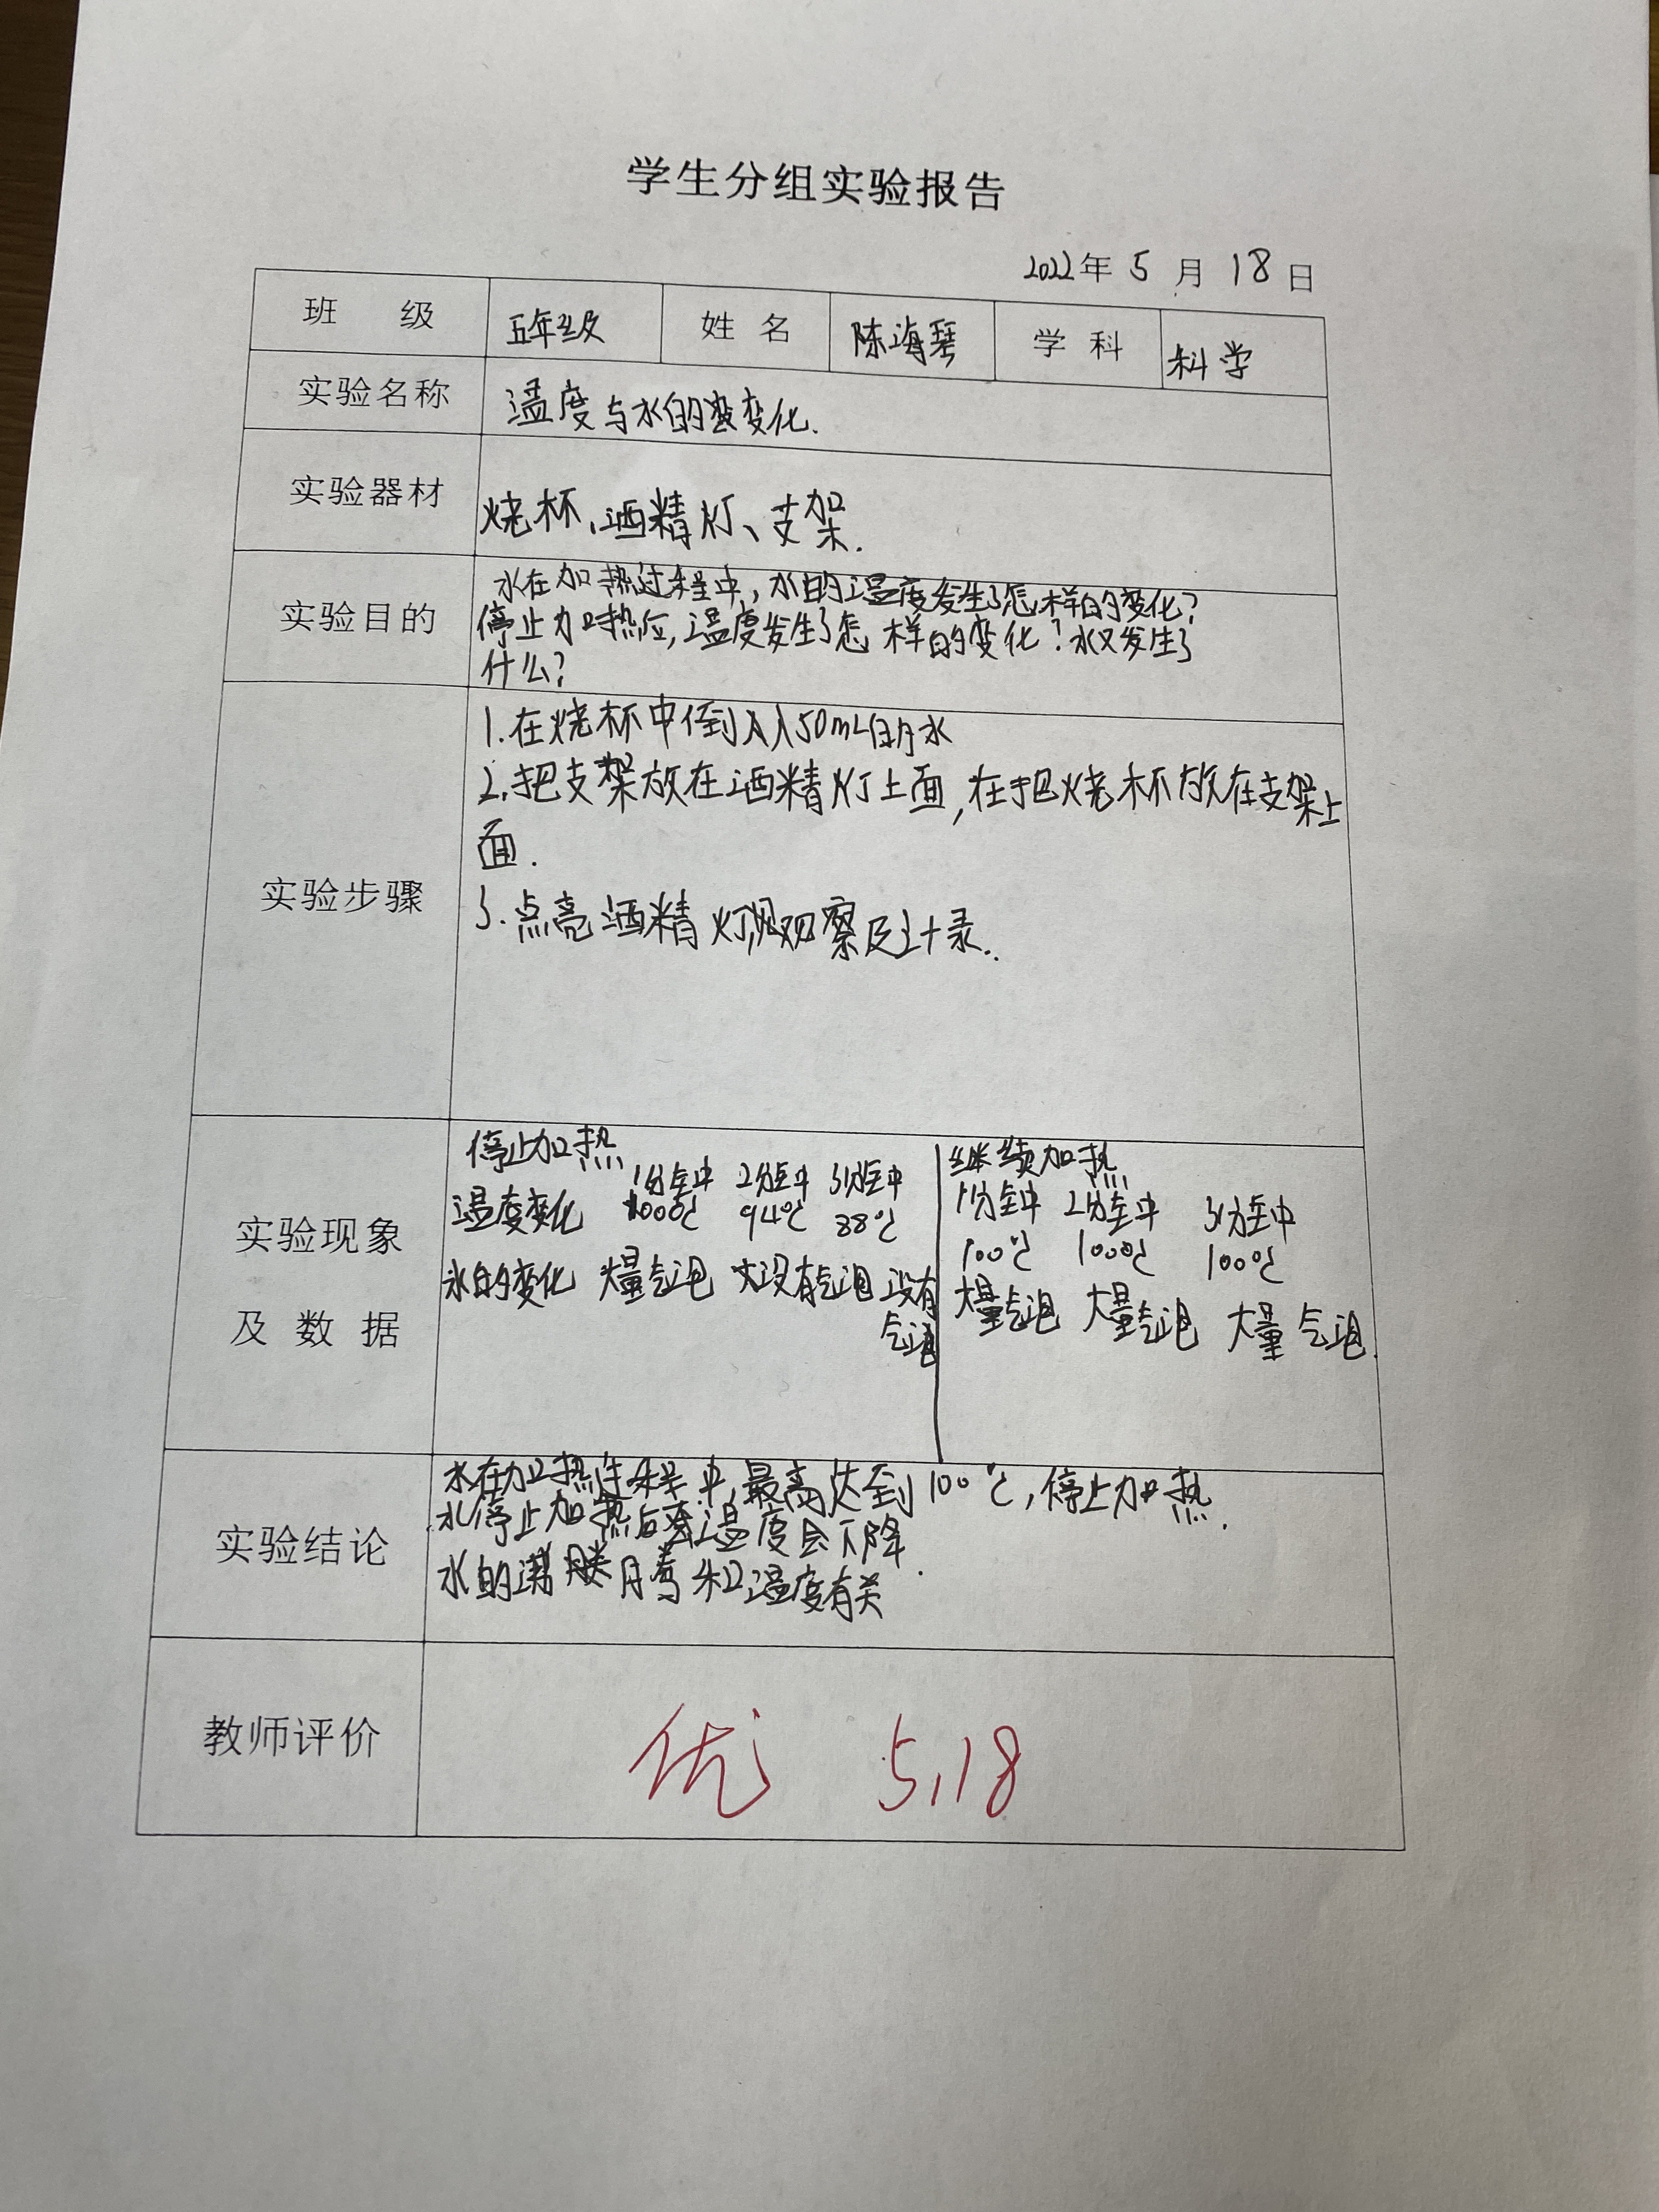 学生分组实验报告
2022年 5 月 18 日
班 级 五年级 姓 名 陈海琴 学 科 科学
实验名称 温度与水的变化.
实验器材 烧杯、酒精灯、支架.
实验目的
水在加热过程中,水的温度发生了怎样的变化?
停止加热后,温度发生了怎样的变化?水又发生了
什么?
实验步骤
1.在烧杯中倒入50mL的水
2.把支架放在酒精灯上面,在把烧杯放在支架上
面.
3.点亮酒精灯,观察及计录.
实验现象
及 数 据
停止加热
1分钟 2分钟 3分钟
温度变化 100℃ 94℃ 88℃
水的变化 大量气泡 没有气泡 没有
气泡
继续加热
1分钟 2分钟 3分钟
100℃ 100℃ 100℃
大量气泡 大量气泡 大量气泡.
实验结论
水在加热过程中,最高达到100℃,停止加热.
水停止加热后温度会下降.
水的沸腾和温度有关
教师评价 优 5.18